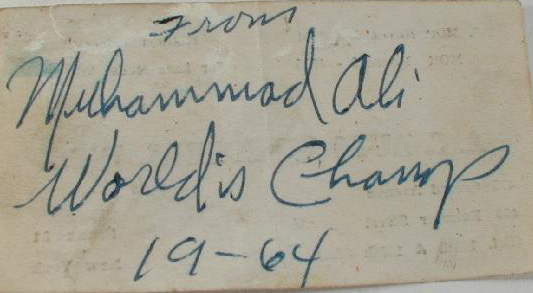 From
Muhammad Ali
World is Champ
19-64